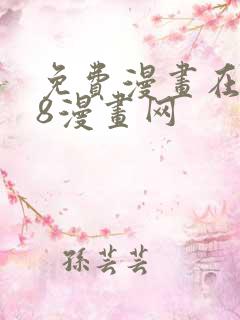 免費漫畫在
8漫畫网
孫芸芸